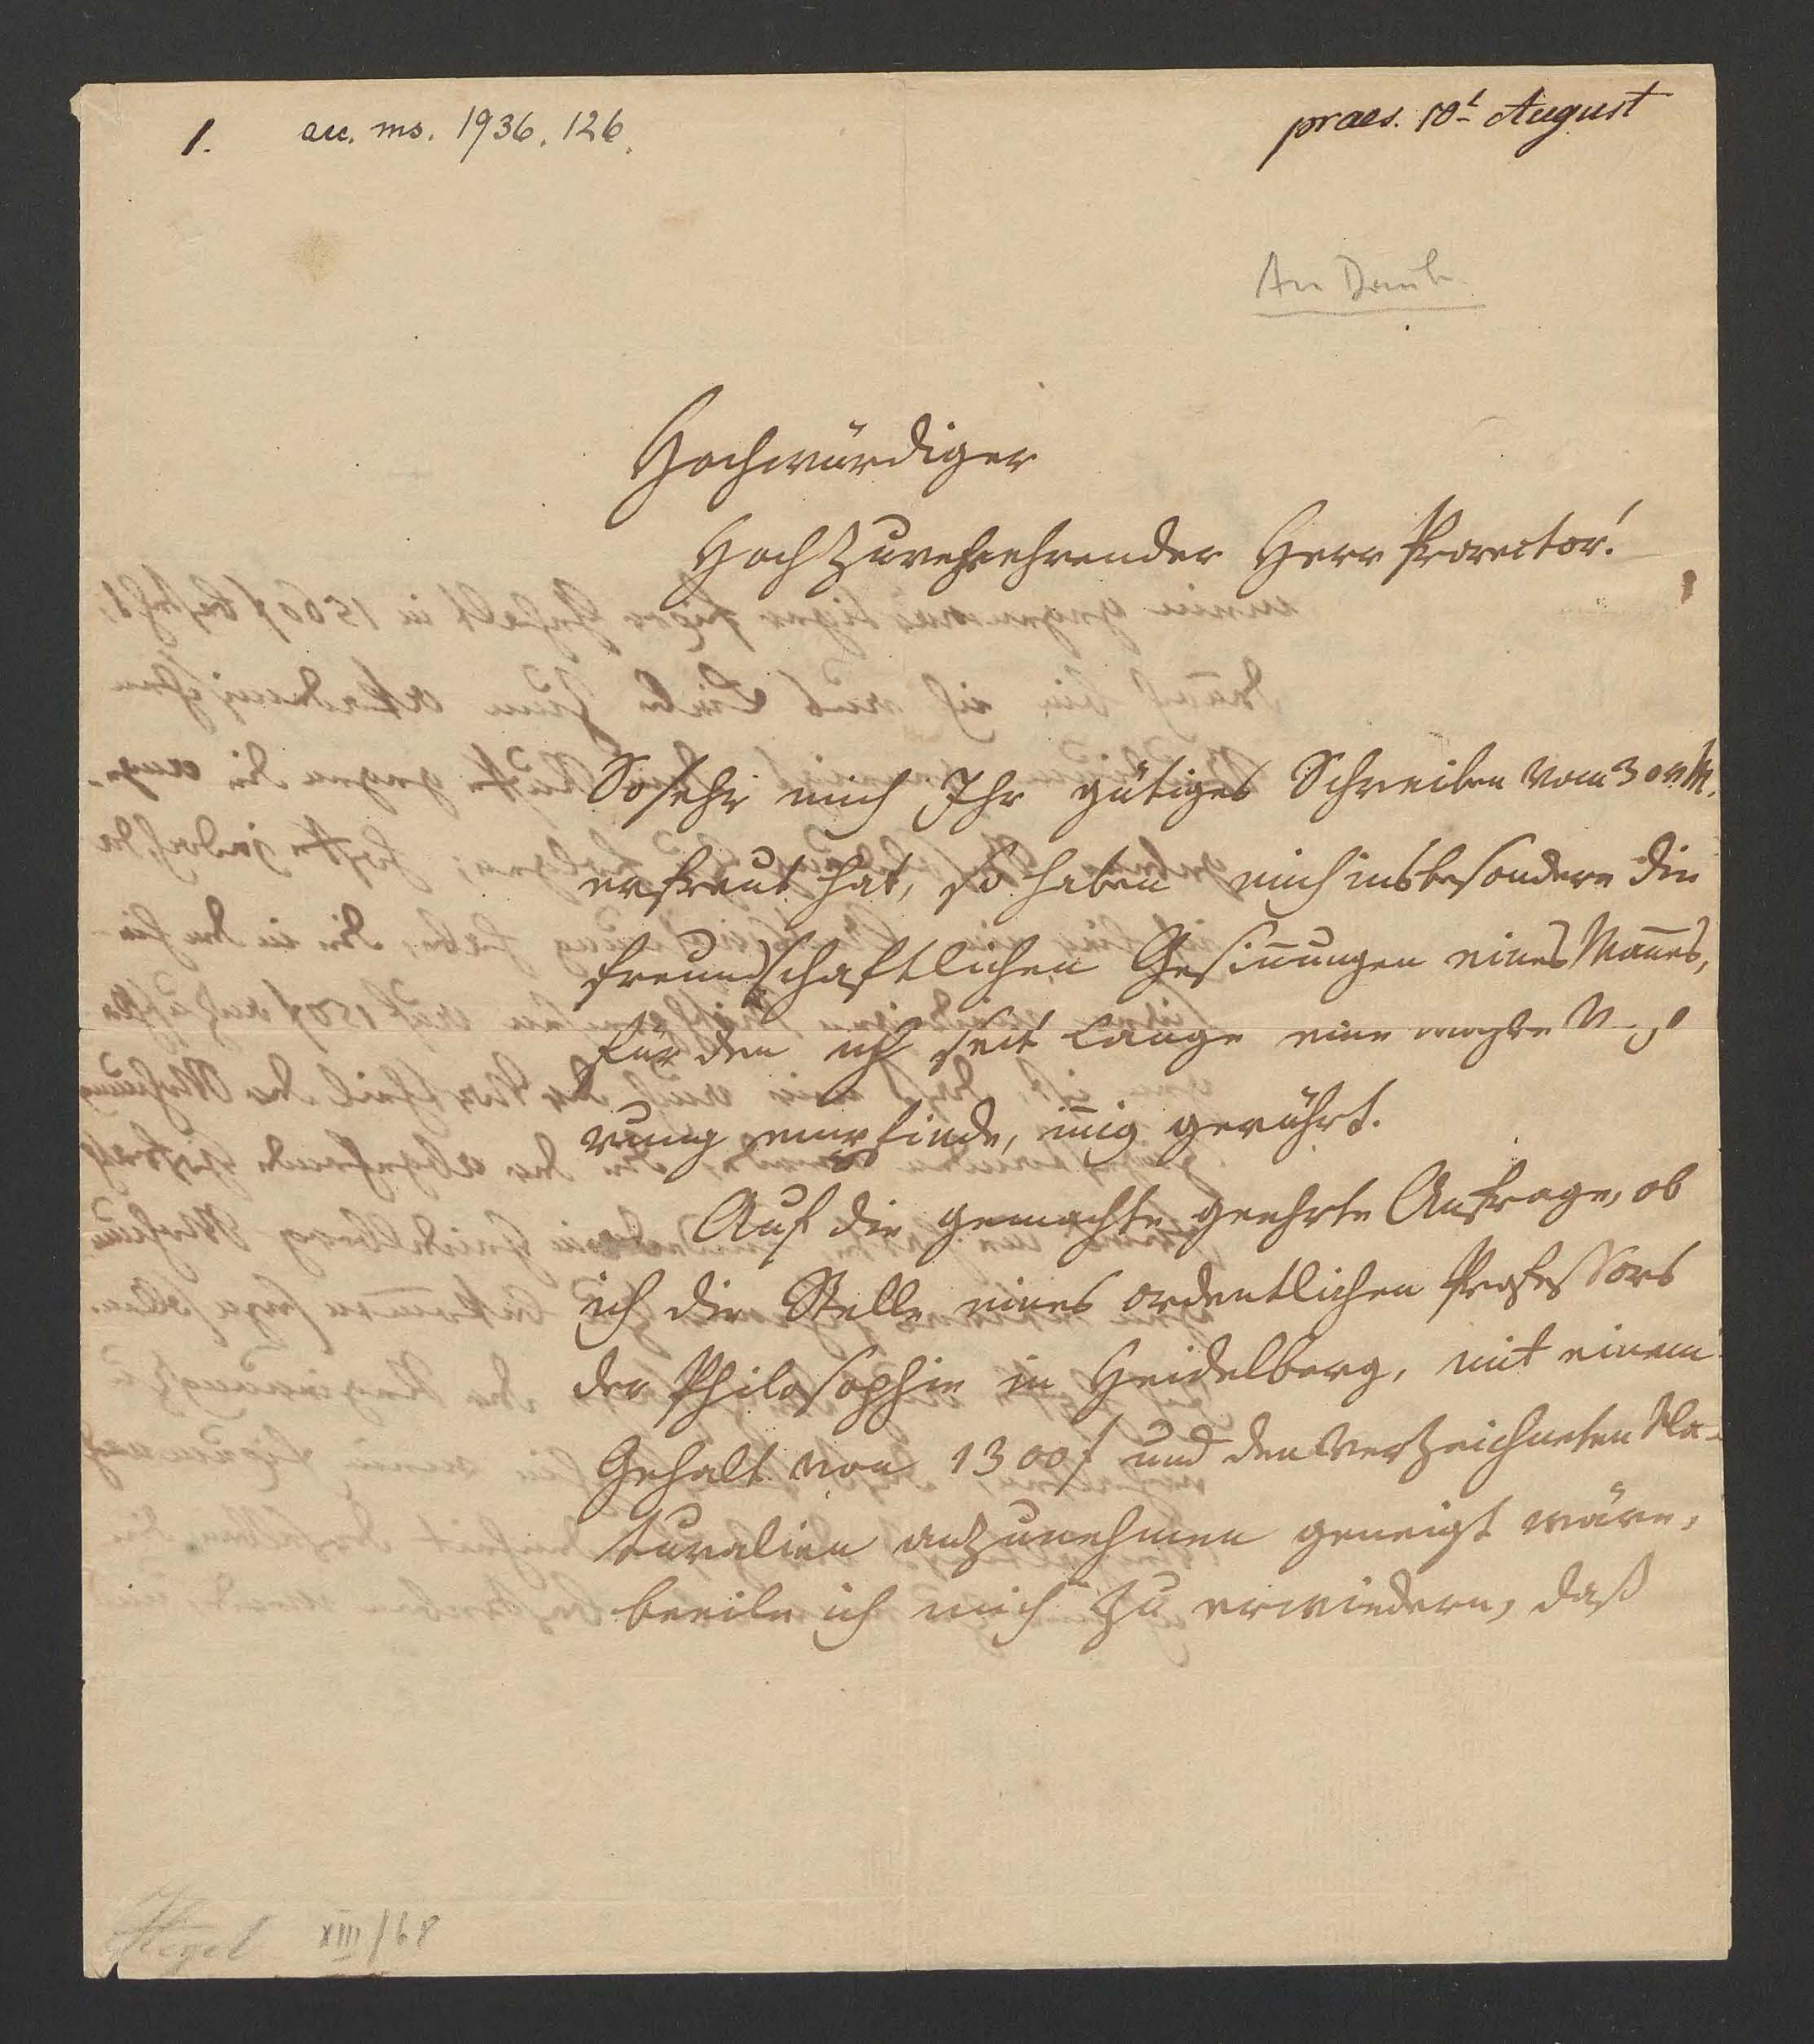 1. acc. ms. 1936. 126.
praes. 10t August
An Daub.
Hochwürdiger
HochZuverehrender Herr Prorector!
So sehr mich Ihr gütiges Schreiben vom 30 v. M.
erfreut hat, so haben mich insbesondere die
freundschaftlichen Gesin̄ungen eines Man̄es,
für den ich seit lange eine wahre
rung empfinde, in̄ig gerührt.
Auf die gemachte geehrte Anfrage, ob
ich die Stelle eines ordentlichen Professors
der Philosophie in Heidelberg, mit einem
Gehalt von 1300 f und den verzeichneten Na-
turalien anzunehmen geneigt wäre,
beeile ich mich zu erwiedern, daß
Hegel XIII/68